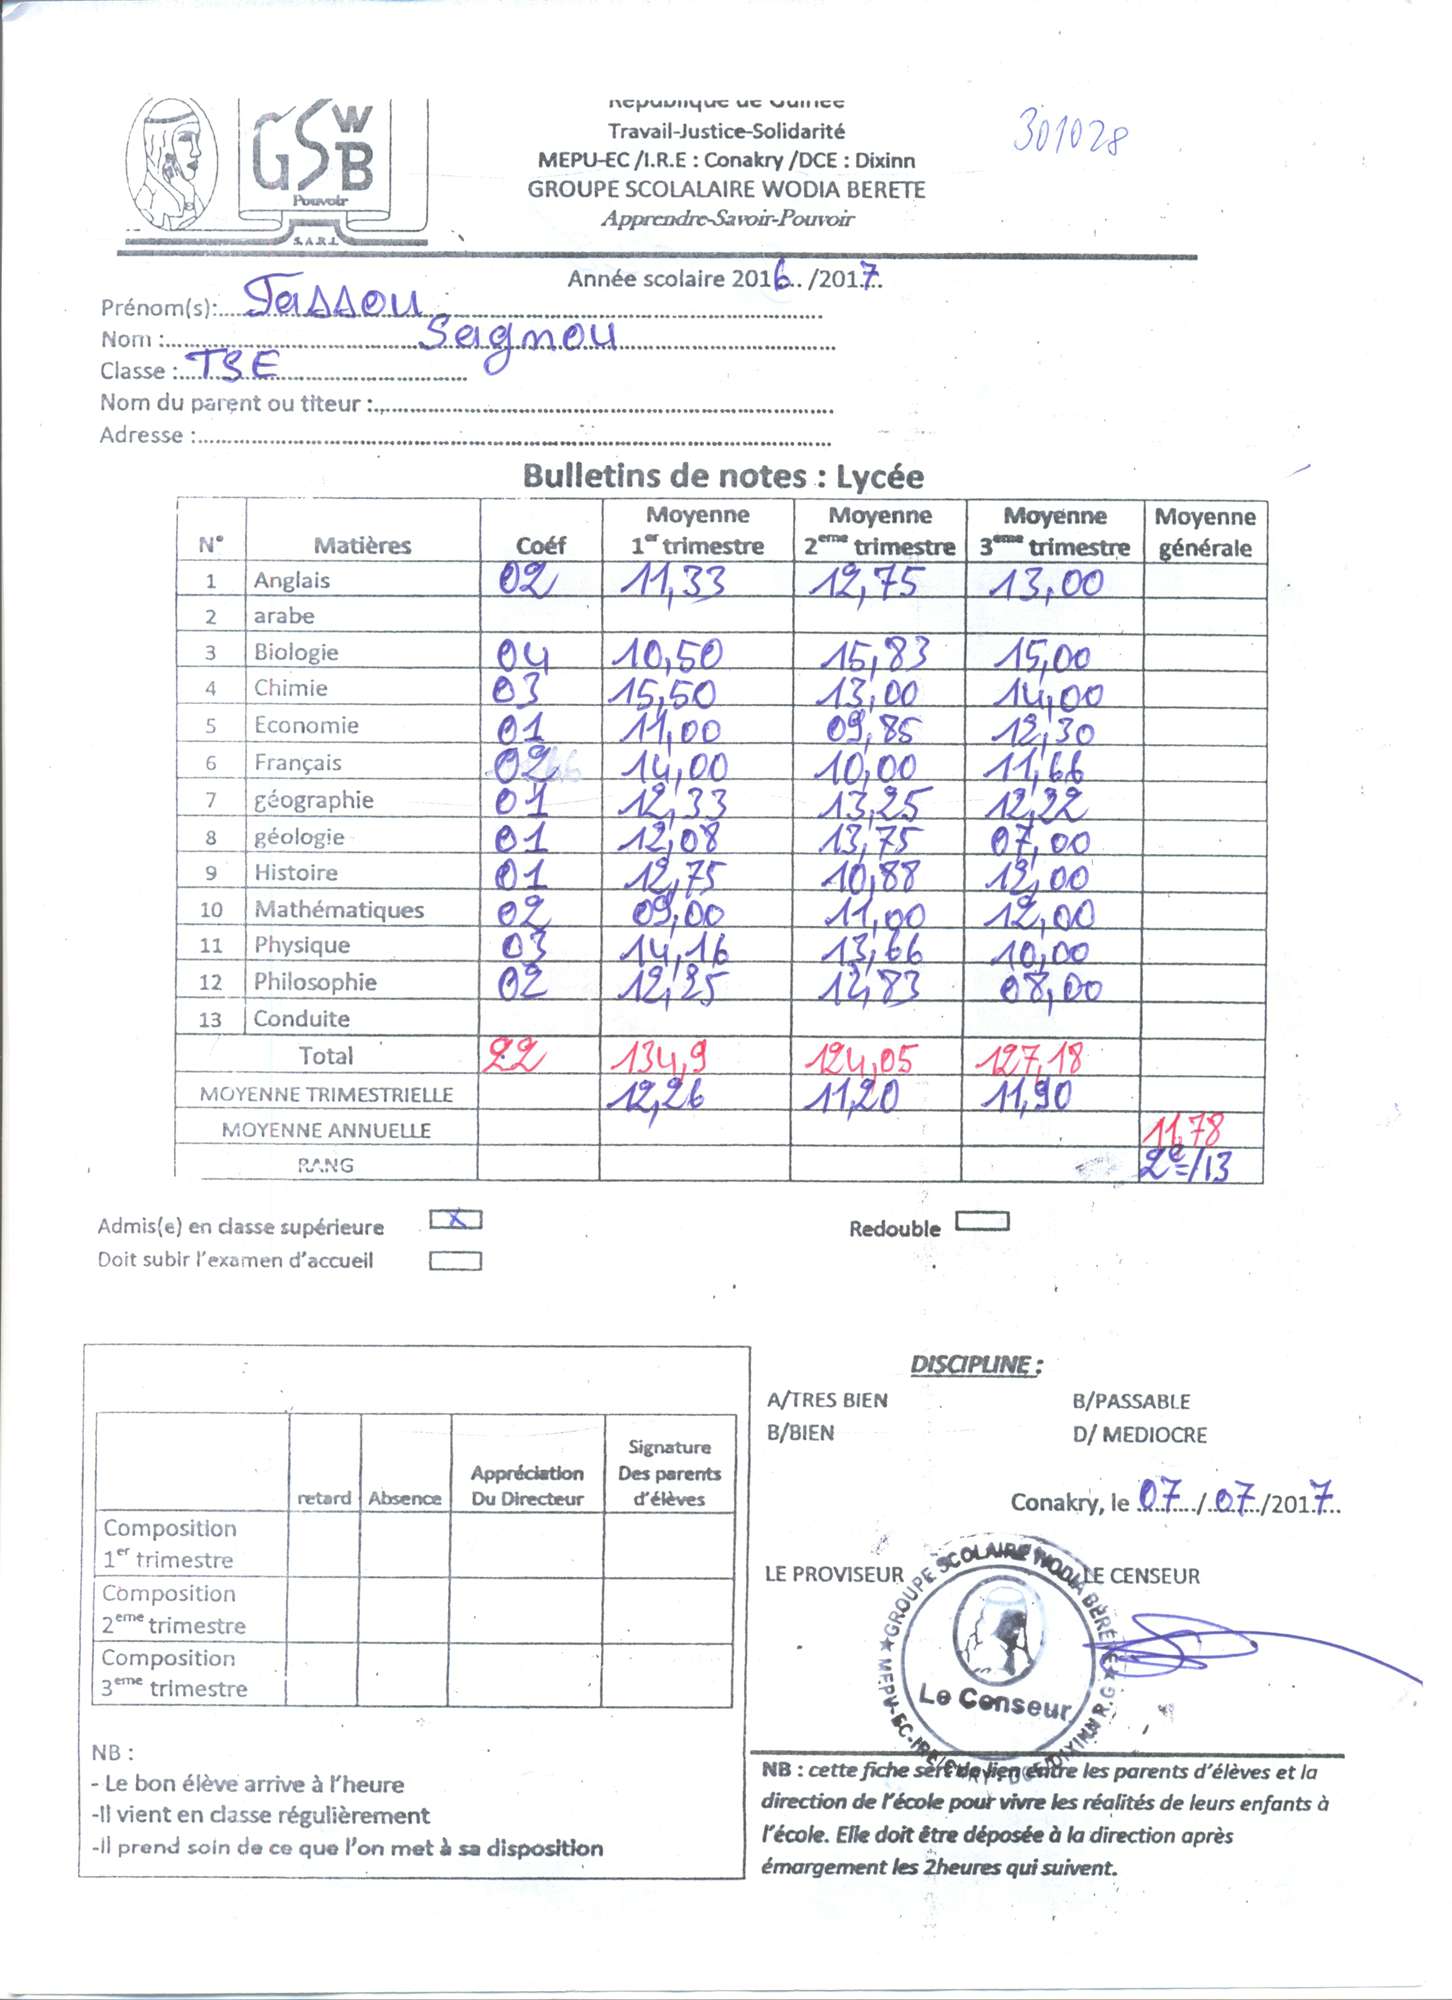 GSWB
Pouvoir
S.A.R.L
République de Guinée
Travail-Justice-Solidarité
MEPU-EC /I.R.E : Conakry /DCE : Dixinn
GROUPE SCOLALAIRE WODIA BERETE
Apprendre-Savoir-Pouvoir
301028
Année scolaire 2016.. /2017...
Prénom(s):....Tassou....
Nom :....Sagnou....
Classe :....TSE....
Nom du parent ou titeur :....
Adresse :....
Bulletins de notes : Lycée
N° Matières Coéf Moyenne 1er trimestre Moyenne 2eme trimestre Moyenne 3eme trimestre Moyenne générale
1 Anglais 02 11,33 12,75 13,00
2 arabe
3 Biologie 04 10,50 15,83 15,00
4 Chimie 03 15,50 13,00 14,00
5 Economie 01 11,00 09,85 12,30
6 Français 02 14,00 10,00 11,66
7 géographie 01 12,33 13,25 12,22
8 géologie 01 12,08 13,75 07,00
9 Histoire 01 12,75 10,88 12,00
10 Mathématiques 02 09,00 11,00 12,00
11 Physique 03 14,16 13,66 10,00
12 Philosophie 02 12,25 12,83 08,00
13 Conduite
Total 22 134,9 124,05 127,18
MOYENNE TRIMESTRIELLE 12,26 11,20 11,90
MOYENNE ANNUELLE 11,78
RANG 2e/13
Admis(e) en classe supérieure X Redouble
Doit subir l'examen d'accueil
retard Absence Appréciation Du Directeur Signature Des parents d'élèves
Composition 1er trimestre
Composition 2eme trimestre
Composition 3eme trimestre
NB :
- Le bon élève arrive à l'heure
-Il vient en classe régulièrement
-Il prend soin de ce que l'on met à sa disposition
DISCIPLINE :
A/TRES BIEN B/PASSABLE
B/BIEN D/ MEDIOCRE
Conakry, le 07/07/2017
LE PROVISEUR LE CENSEUR
GROUPE SCOLAIRE WODIA BERETE
Le Censeur
NB : cette fiche sert de lien entre les parents d'élèves et la
direction de l'école pour vivre les réalités de leurs enfants à
l'école. Elle doit être déposée à la direction après
émargement les 2heures qui suivent.